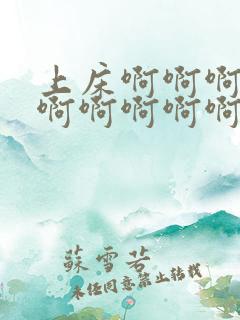 上床啊啊啊
啊啊啊啊啊
蘇雪若
未经同意禁止转载